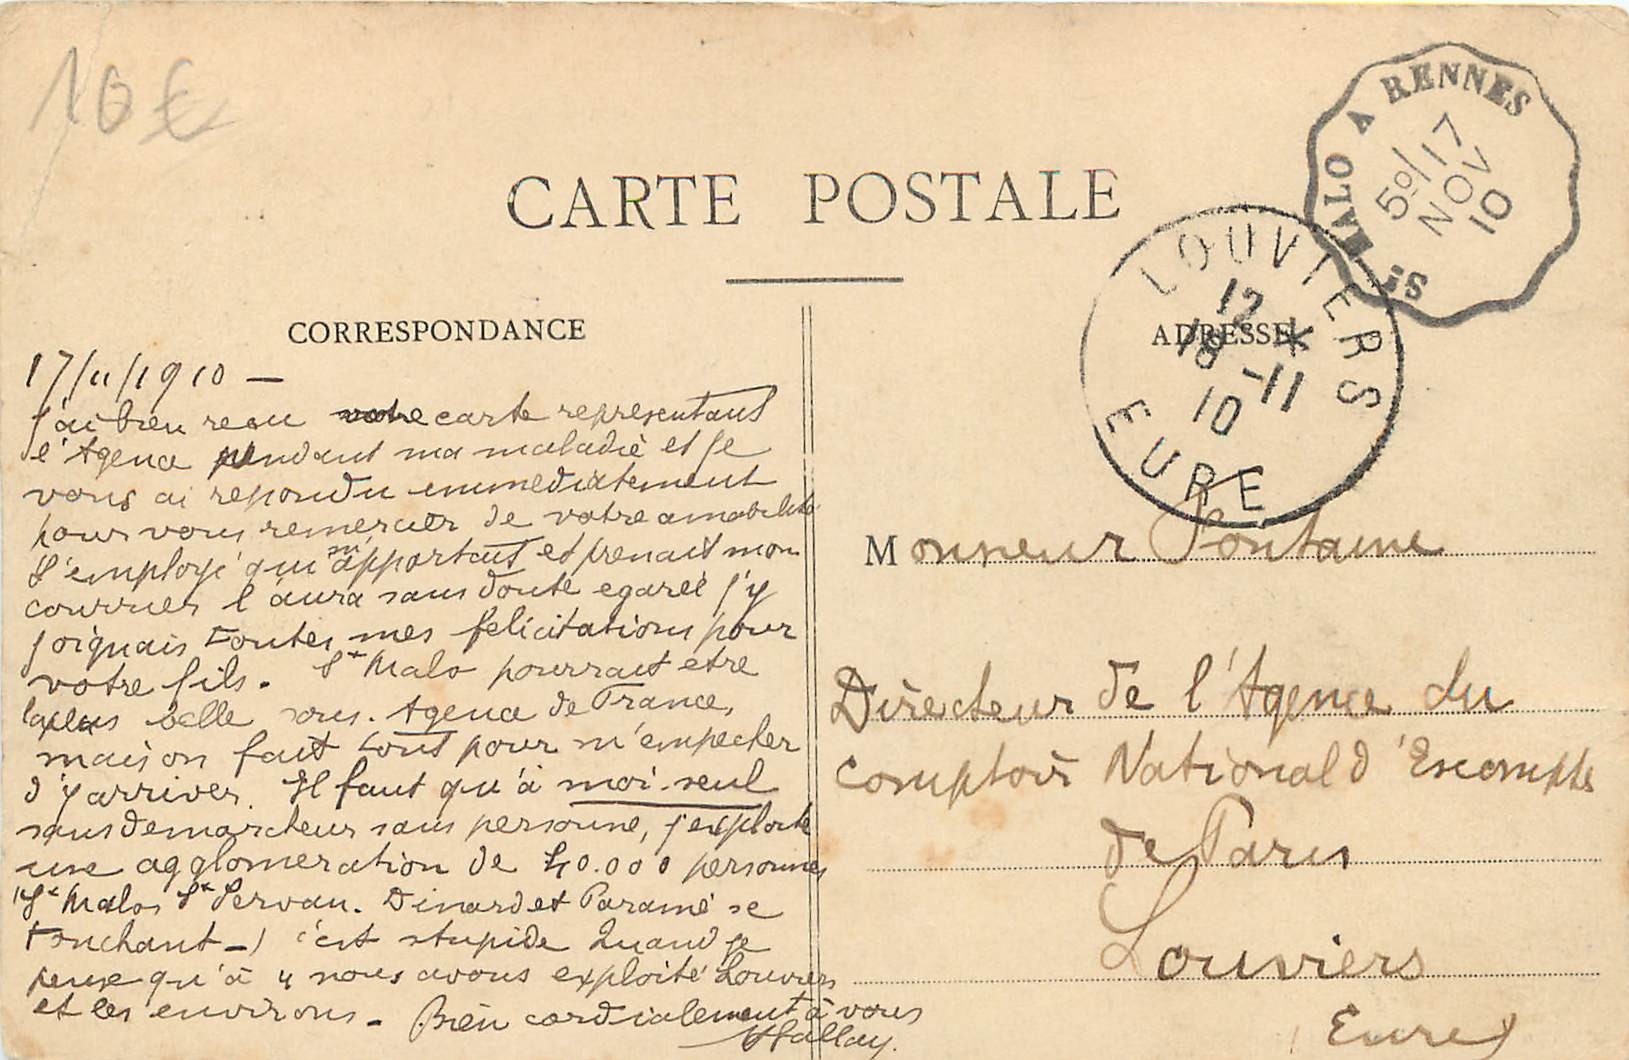 10 €
CARTE POSTALE
St MALO A RENNES
5°/17
NOV
10
LOUVIERS
12 *
18 -11
10
EURE
CORRESPONDANCE
17/11/1910 —
J'ai bien recu votre carte representant
l'Agence pendant ma maladie et je
vous ai repondu immediatement
pour vous remercier de votre amabilité
L'employé qui m'apportait et prenait mon
courrier l'aura sans doute egareé j'y
joignais toutes mes felicitations pour
votre fils. St Malo pourrait etre
la plus belle sous. Agence de France,
maison fait tout pour m'empecher
d'y arriver. Il faut qu'à moi seul
sans demarcheur sans personne, j'exploite
une agglomeration de 40.000 personnes
(St Malo, St Servan. Dinard et Paramé se
touchant —) c'est stupide Quand je
pense qu'à 4 nous avons exploité Louviers
et les environs. Bien cordialement à vous
ADRESSE
Monsieur Fontaine
Directeur de l'Agence du
Comptoir National d'Escompte
de Paris
Louviers
Eure